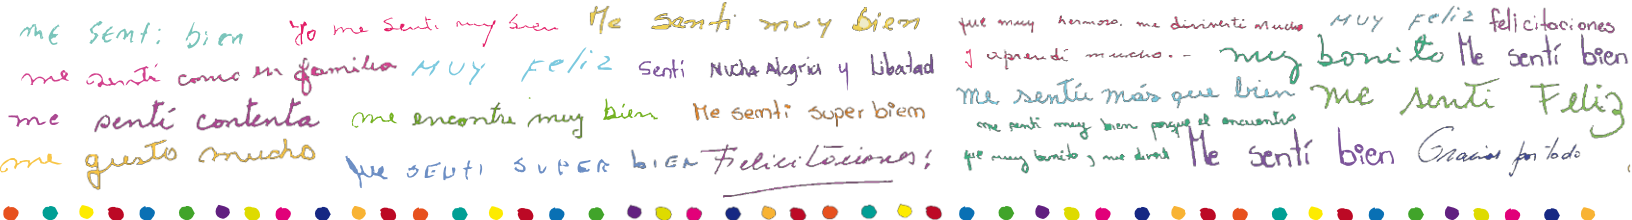 me sentí bien
Yo me senti muy bien
Me senti muy bien
fue muy hermoso. me divinerti mucho
y aprendí mucho.-
MUY FeliZ
felicitaciones
me sentí como en familia
MUY FeliZ
Sentí Mucha Alegria y Libertad
muy bonito
Me sentí bien
me sentí contenta
me encontre muy bien
Me semti super biem
me sentíu más que bien
me senti Feliz
me senti muy bien porque el encuentro
fue muy bonito y me diverti
me gusto mucho
fue SENTI SUPER bIEN
Felicitaciones!
Me sentí bien
Gracias por todo